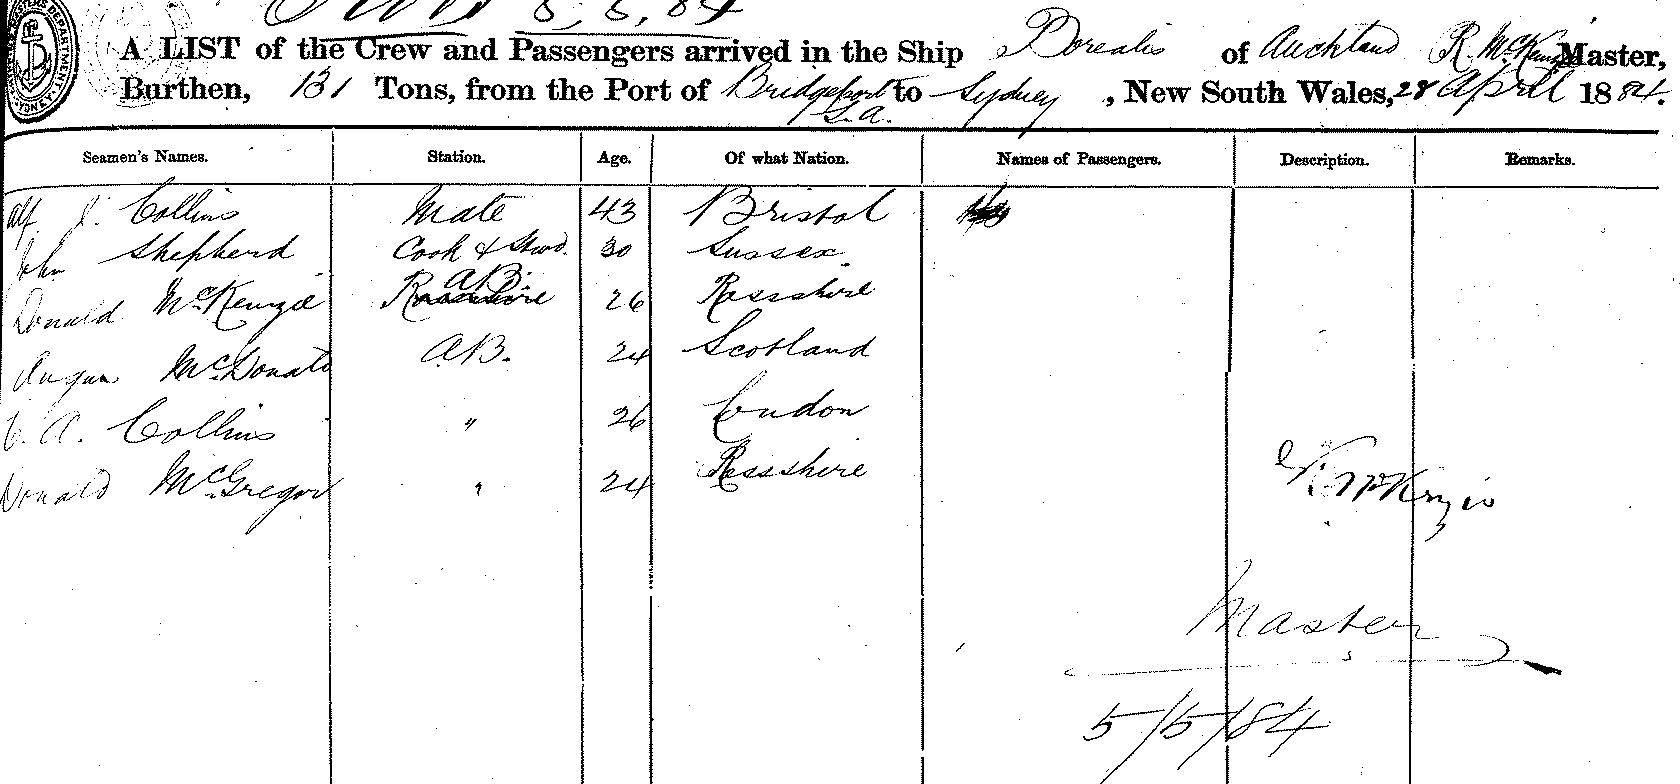 5, 5, 84
A LIST of the Crew and Passengers arrived in the Ship Borealis of Auckland R. McKenzie Master,
Burthen, 131 Tons, from the Port of Bridgeport S.A. to Sydney, New South Wales, 28 April 1884.
Seamen's Names. Station. Age. Of what Nation. Names of Passengers. Description. Remarks.
Alf. J. Collins Mate 43 Bristol
John Shepherd Cook & Stwd. 30 Sussex.
Donald McKenzie A.B. 26 Rossshire
Angus McDonald A.B. 24 Scotland
C. A. Collins " 26 London
Donald McGregor " 24 Rossshire
R McKenzie
Master
5/5/84